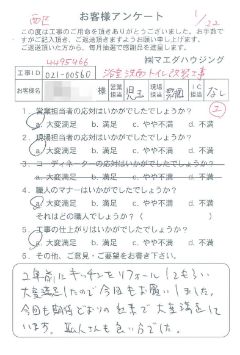 西区
お客様アンケート
1/22
この度は工事のご用命を頂きありがとうございました。お手数で
すがご記入頂き、ご返送頂きますようお願い申し上げます。
ご返送頂いた方から、毎月抽選で感謝品を送呈します。
4495466
㈱マエダハウジング
工事ID 021-00560 浴室洗面トイレ改装工事
お客様名 様 営業担当 児玉 現場担当 コーデ担当 なし
1. 営業担当者の応対はいかがでしたでしょうか?
a. 大変満足 b. 満足 c. やや不満 d. 不満
2. 現場担当者の応対はいかがでしたでしょうか?
a. 大変満足 b. 満足 c. やや不満 d. 不満
3. コーディネーターの応対はいかがでしたでしょうか?
a. 大変満足 b. 満足 c. やや不満 d. 不満
4. 職人のマナーはいかがでしたでしょうか?
a. 大変満足 b. 満足 c. やや不満 d. 不満
それはどの職人でしょうか?( )
5. 工事の仕上がりはいかがでしたでしょうか?
a. 大変満足 b. 満足 c. やや不満 d. 不満
6. その他、ご意見・ご要望をお書き下さい。
2年前にキッチンをリフォームしてもらい
大変満足したので今回もお願いしました。
今回も期待どおりの出来で大変満足して
います。職人さんも良い方でした。